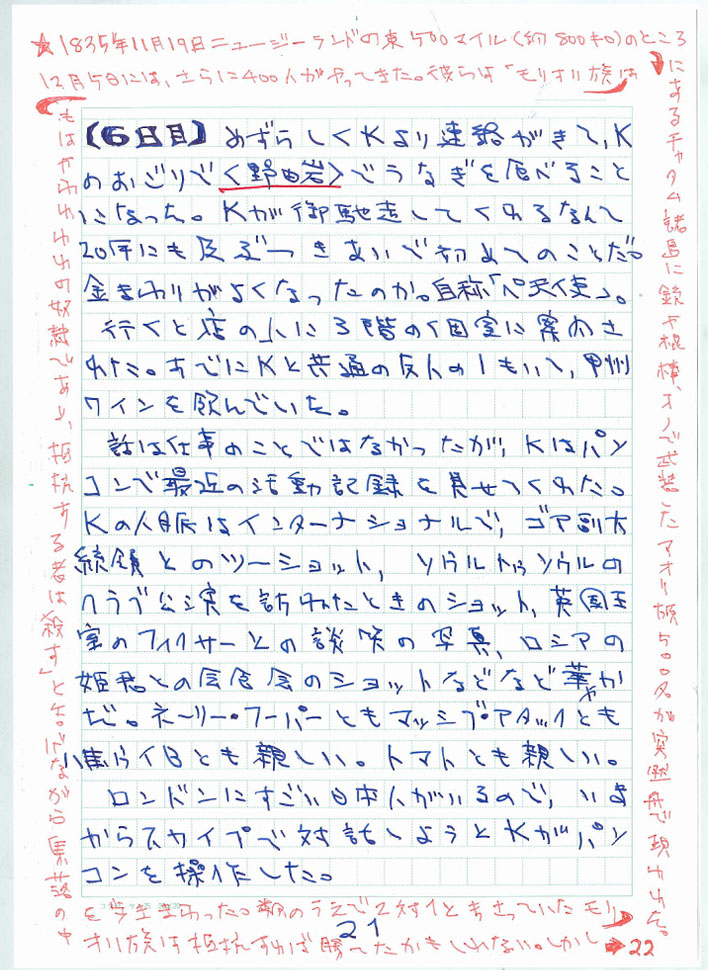 ★1835年11月19日ニュージーランドの東500マイル(約800キロ)のところ
にあるチャタム諸島に銃や棍棒、オノで武装したマオリ族500名が突然舟で現われた。
12月5日には、さらに400人がやってきた。彼らは「モリオリ族は
もはやわれわれの奴隷であり、抵抗する者は殺す」と告げながら集落の中
を歩きまわった。数のうえで2対1とまさっていたモリ
オリ族は抵抗すれば勝てたかもしれない。しかし→22
【6日目】めずらしくKより連絡がきて、K
のおごりで〈野田岩〉でうなぎを食べること
になった。Kが御馳走してくれるなんて
20年にも及ぶつきあいで初めてのことだ。
金まわりがよくなったのか。自称「ペ天使」。
行くと店の人に3階の個室に案内さ
れた。すでにKと共通の友人のIもいて、甲州
ワインを飲んでいた。
話は仕事のことではなかったが、Kはパソ
コンで最近の活動記録を見せてくれた。
Kの人脈はインターナショナルで、ゴア副大
統領とのツーショット、ソウルトゥソウルの
クラブ公演を訪れたときのショット、英国王
室のフィクサーとの談笑の写真、ロシアの
姫君との会食会のショットなどなど華やか
だ。ネーリー・フーパーともマッシブ・アタックとも
八馬らイBとも親しい。トマトとも親しい。
ロンドンにすごい日本人がいるので、いま
からスカイプで対話しようとKがパソ
コンを操作した。
21